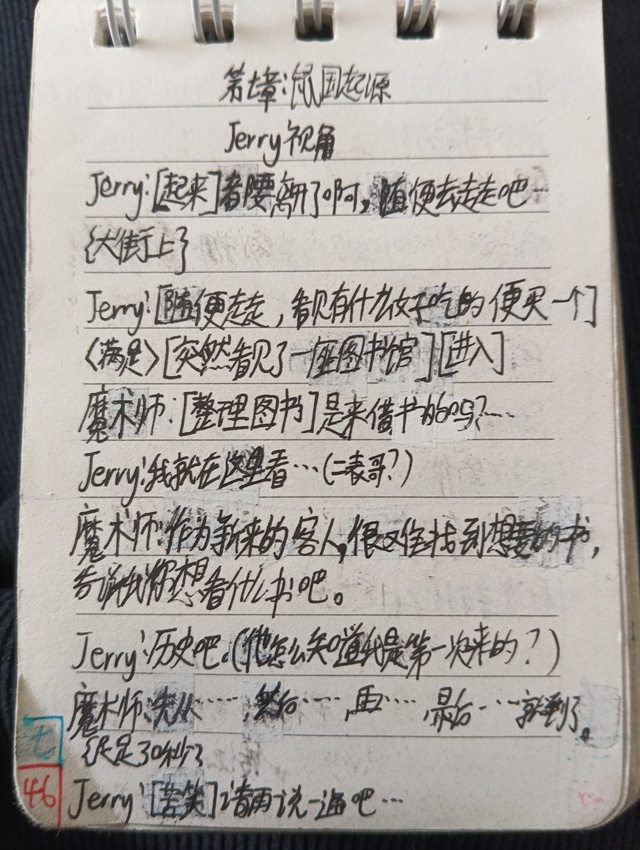 第七章:鼠国起源
Jerry视角
Jerry:[起来]者要离开了啊,随便去走走吧…
{大街上}
Jerry:[随便走走,看见有什么好吃的便买一个]
〈满足〉[突然看见了一座图书馆][进入]
魔术师:[整理图书]是来借书的吗?…
Jerry:我就在这里看…(二表哥?)
魔术师:作为新来的客人,很难找到想要的书,
告诉我你想看什么书吧。
Jerry:历史吧。(他怎么知道我是第一次来的?)
魔术师:先从……,然后……,再……,最后……就到了。
{于是30秒}
Jerry:[苦笑]请再说一遍吧…
七
46